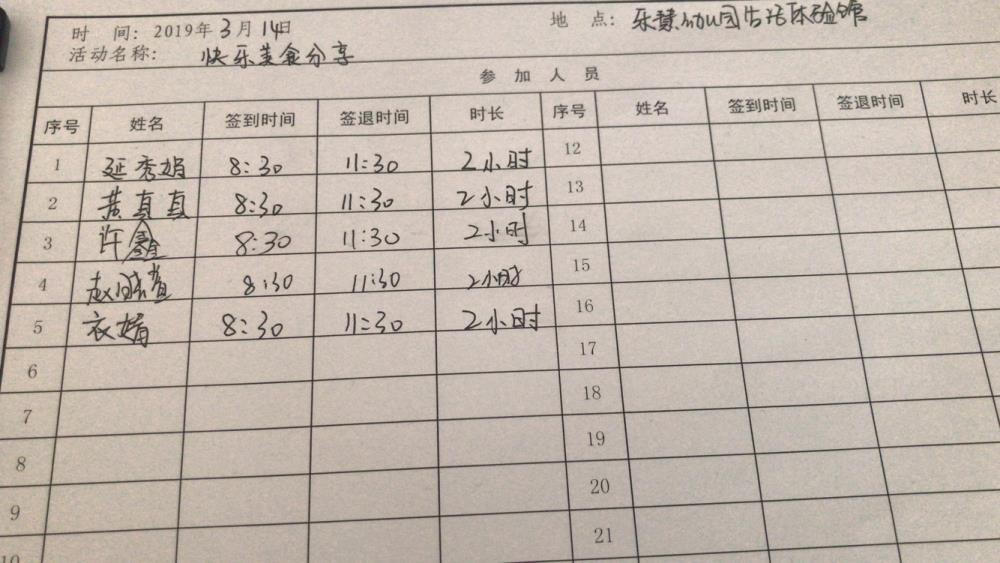 时 间：2019年3月14日 地 点：乐慧幼儿园生活体验馆
活动名称： 快乐美食分享
参 加 人 员
序号 姓名 签到时间 签退时间 时长 序号 姓名 签到时间 签退时间 时长
1 延秀娟 8:30 11:30 2小时 12
2 黄真真 8:30 11:30 2小时 13
3 许鑫 8:30 11:30 2小时 14
4 赵 8:30 11:30 2小时 15
5 衣娟 8:30 11:30 2小时 16
6 17
7 18
8 19
9 20
10 21